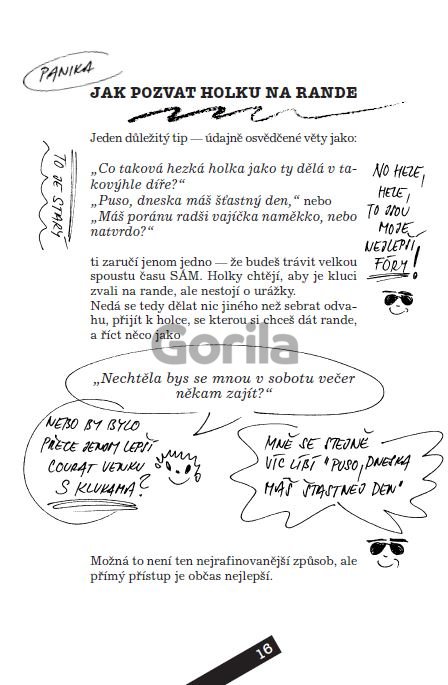 PANIKA
JAK POZVAT HOLKU NA RANDE
Jeden důležitý tip — údajně osvědčené věty jako:
TO JE STARÝ
„Co taková hezká holka jako ty dělá v ta-
kovýhle díře?“
„Puso, dneska máš šťastný den,“ nebo
„Máš poránu radši vajíčka naměkko, nebo
natvrdo?“
NO HELE,
HELE,
TO JSOU
MOJE
NEJLEPŠÍ
FÓRY!
ti zaručí jenom jedno — že budeš trávit velkou
spoustu času SÁM. Holky chtějí, aby je kluci
zvali na rande, ale nestojí o urážky.
Nedá se tedy dělat nic jiného než sebrat odva-
hu, přijít k holce, se kterou si chceš dát rande,
a říct něco jako
Gorila
„Nechtěla bys se mnou v sobotu večer
někam zajít?“
NEBO BY BYLO
PŘECE JENOM LEPŠÍ
COURAT VENKU
S KLUKAMA?
MNĚ SE STEJNĚ
VÍC LÍBÍ "PUSO, DNESKA
MÁŠ ŠŤASTNEJ DEN"
Možná to není ten nejrafinovanější způsob, ale
přímý přístup je občas nejlepší.
16